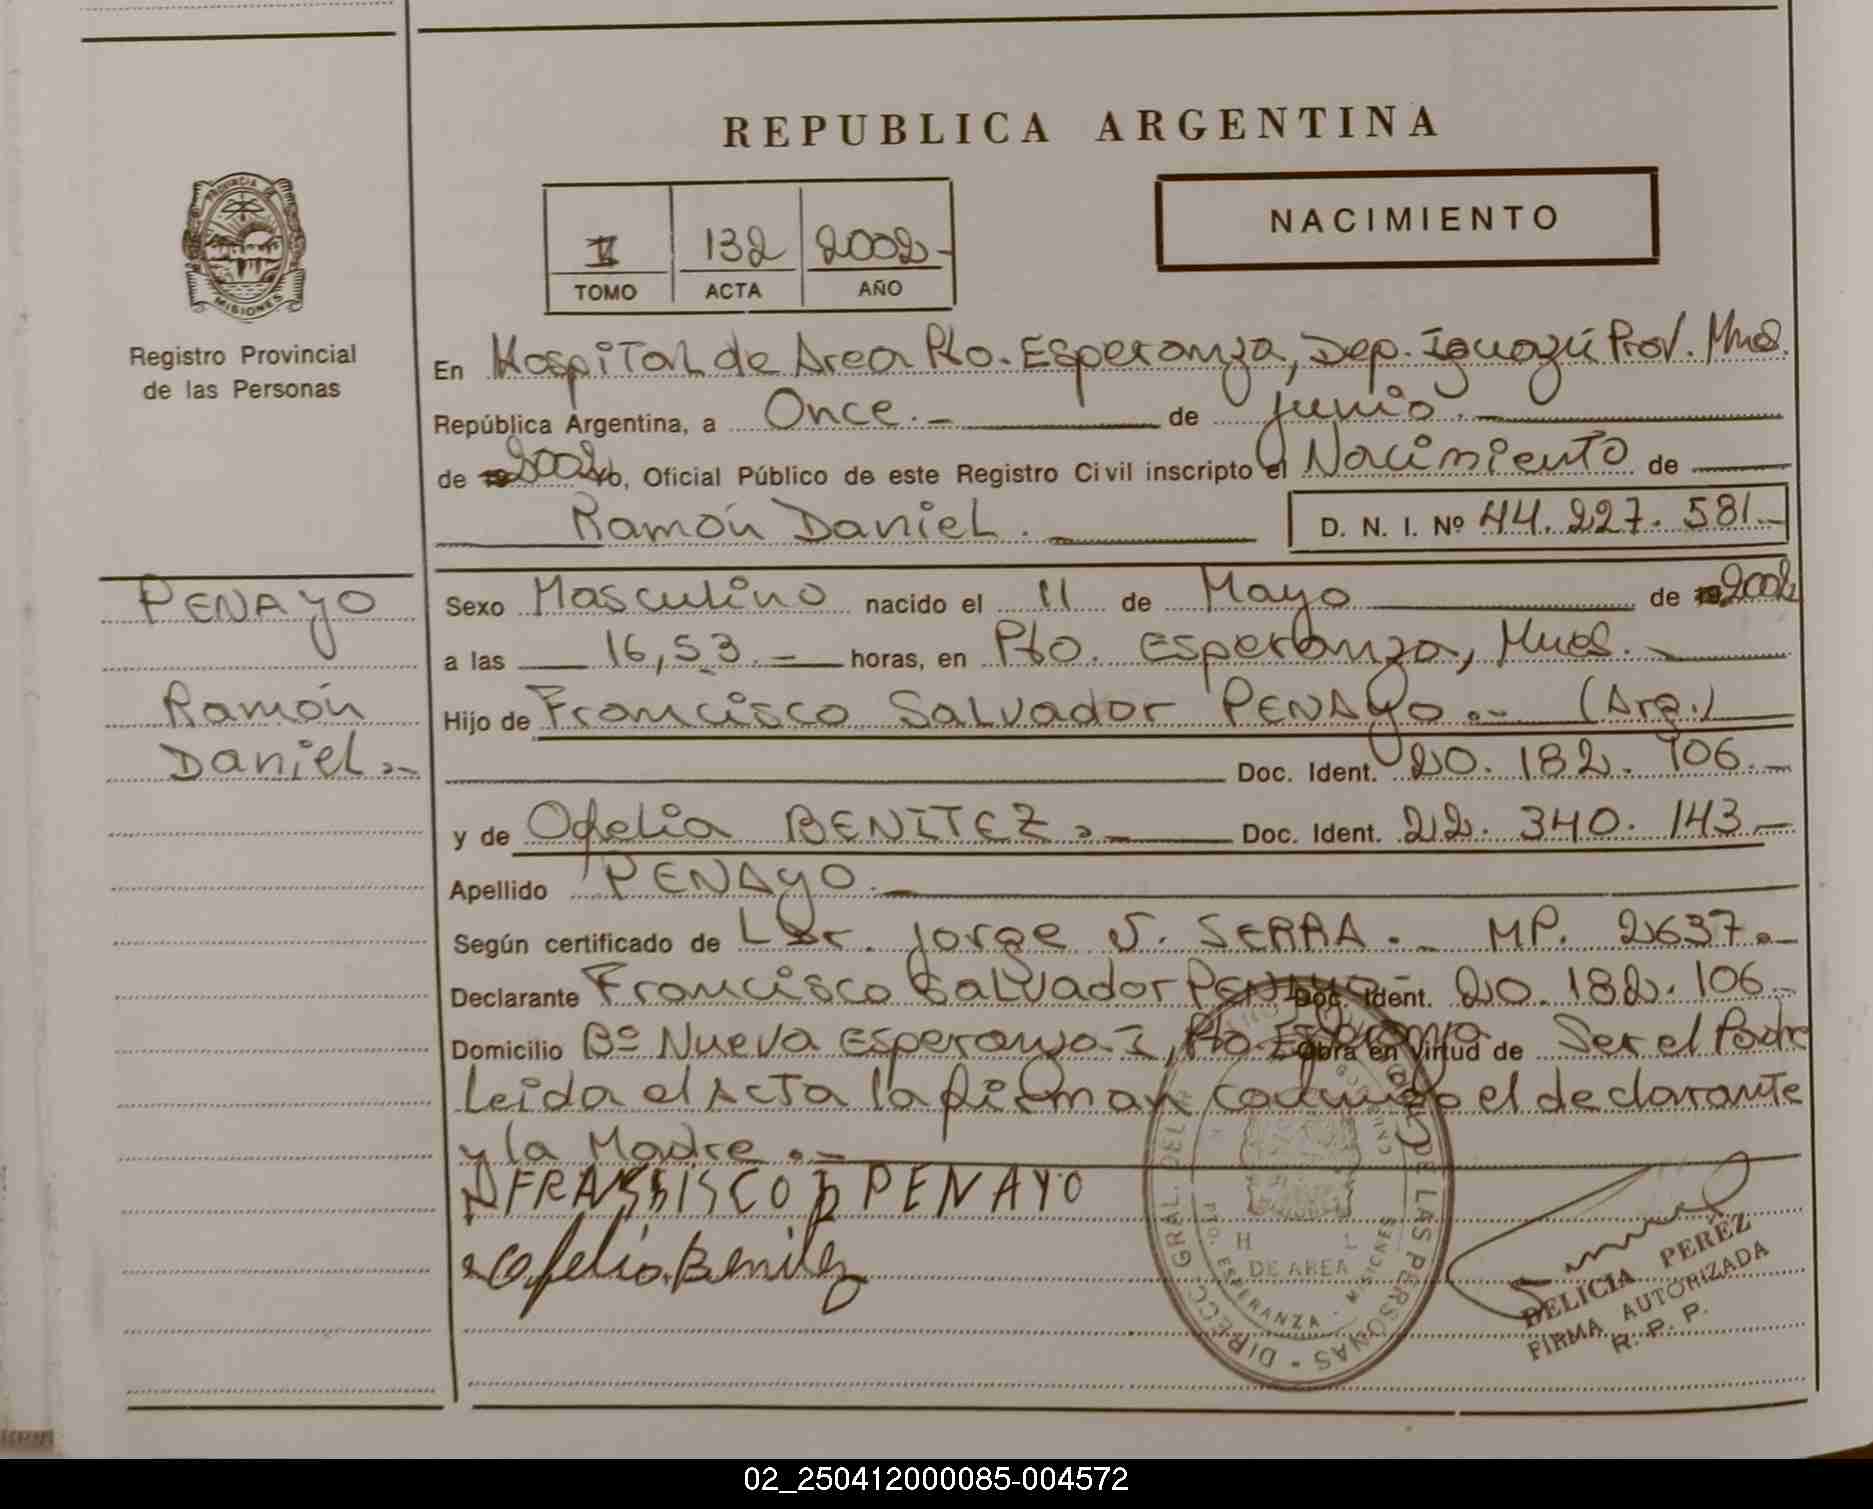 REPUBLICA ARGENTINA
NACIMIENTO
II 132 2002-
TOMO ACTA AÑO
PROVINCIA DE
MISIONES
Registro Provincial
de las Personas
En Hospital de Area Pto. Esperanza, Dep. Iguazú Prov. Mnes.
República Argentina, a Once.- de junio.-
de 2002 yo, Oficial Público de este Registro Civil inscripto el Nacimiento de
Ramón Daniel. D. N. I. Nº 44.227.581.-
PENAYO
Ramón
Daniel.-
Sexo Masculino nacido el 11 de Mayo de 2002
a las 16,53.- horas, en Pto. Esperanza, Mnes.-
Hijo de Francisco Salvador PENAYO.- (Arg.)
Doc. Ident. 20.182.106.-
y de Ofelia BENITEZ.- Doc. Ident. 22.340.143-
Apellido PENAYO.-
Según certificado de Jorge S. SERRA.- MP. 2637.-
Declarante Francisco Salvador PENAYO- Doc. Ident. 20.182.106.-
Domicilio Bº Nueva Esperanza-I, Pto. Esperanza Obra en virtud de Ser el Padre
Leida el Acta la firman conmigo el declarante
y la Madre.-
FRANSISCO PENAYO
Ofelia Benitez
DIRECC. GRAL. DEL DE LAS PERSONAS
H L
DE AREA
PTO. ESPERANZA - MISIONES
DELICIA PEREZ
FIRMA AUTORIZADA
R. P. P.
02_250412000085-004572